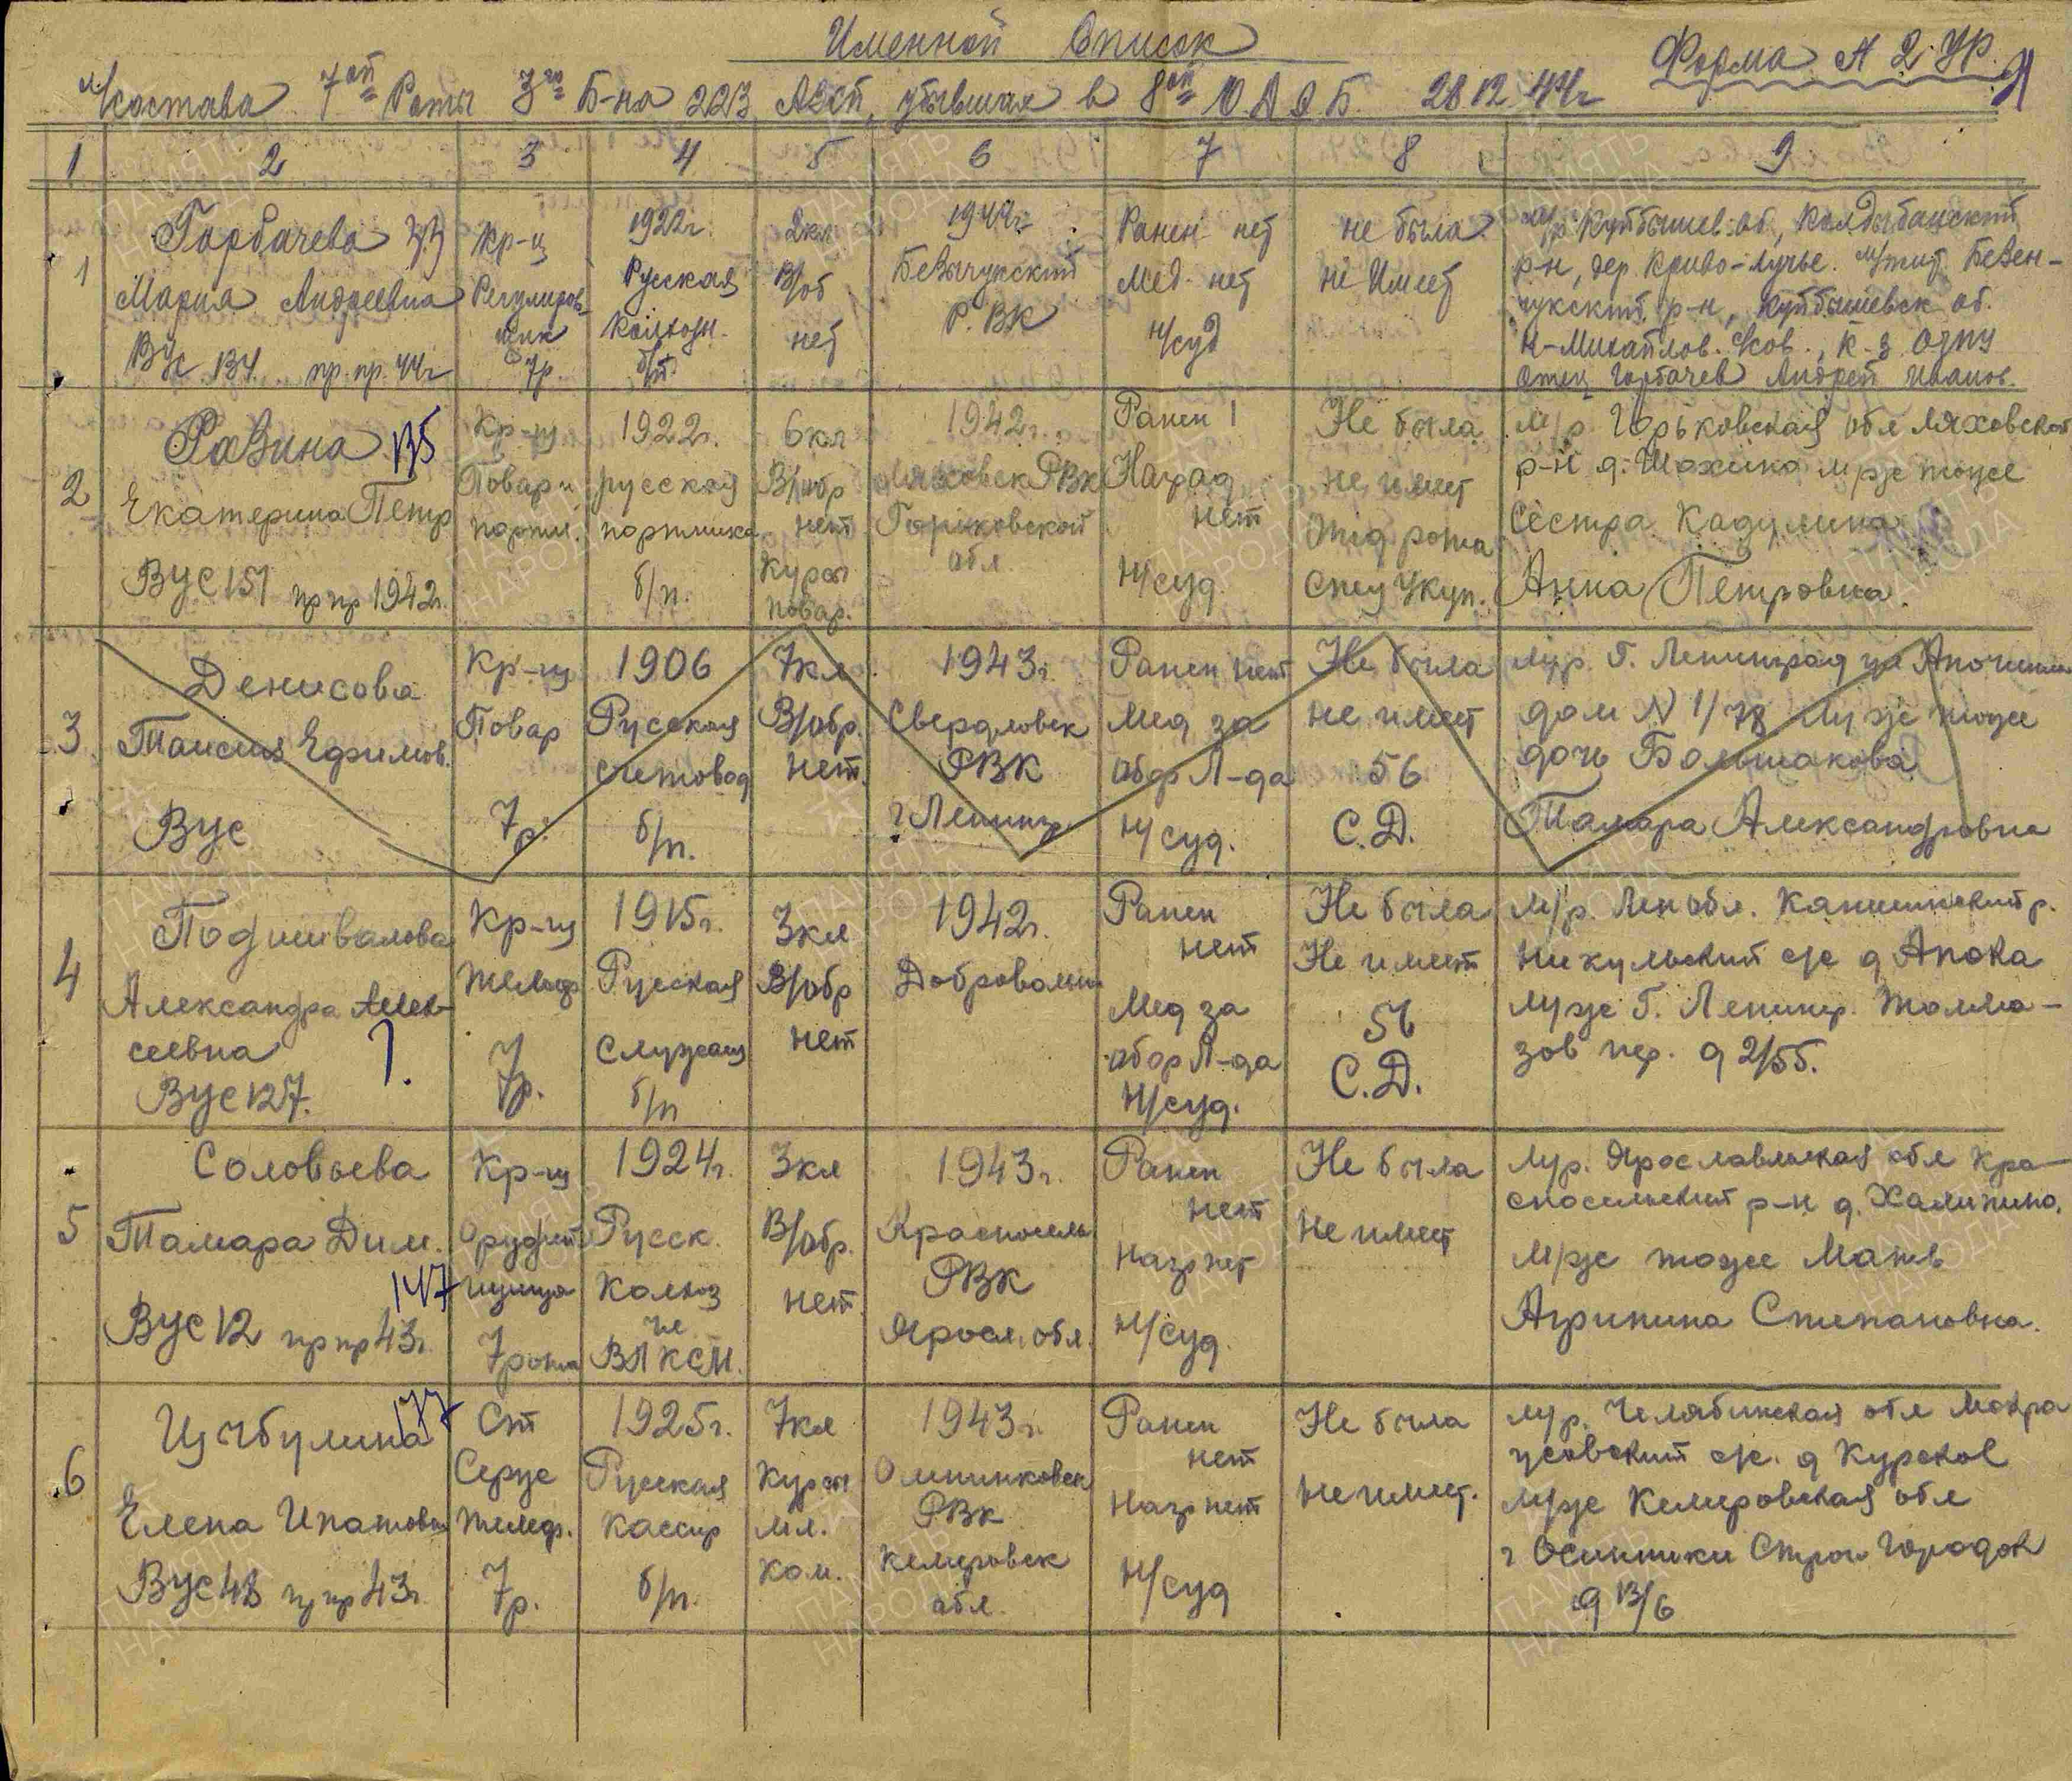 Именной Список
Форма № 2 УР.
л/состава 7ой Роты 3го Б-на 223 АЗСП, убывших в 8ой 28 12 44г
1 2 3 4 5 6 7 8 9
1
Горбачева
Мария Андреевна
ВУС 134 пр. пр. 44г
Кр-ц
Регулиров-
щик
7р.
1922г.
Русская
Колхозн.
б/п.
2кл
В/об
нет
1944г.
Безенчукский
Р.ВК
Ранен нет
Мед. нет
Н/суд
не была
не имеет
м/р Куйбышев. об, Колдыбанский
р-н, дер. Криво-Лучье. м/жит Безен-
чукский р-н, Куйбышевск об.
Н-Михайлов. с/сов., к-з
Отец Горбачев Андрей Иванов.
2
Разина 135
Екатерина Петр
ВУС 151 пр пр 1942г.
Кр-ц
Повар и
портн.
1922г.
русская
портниха
б/п.
6кл
В/обр
нет
Курсы
повар.
1942г.
Ляховск РВК
Горьковской
обл.
Ранен 1
Наград
нет
Н/суд.
Не была
не имеет
рота
м/р Горьковская обл Ляховской
р-н д. м/ж тоже
Сестра Кадулина
Анна Петровна.
3
Денисова
Таисия Ефимов.
Вус
Кр-ц
Повар
7р.
1906
Русская
счетовод
б/п.
7кл
В/обр.
нет.
1943г.
Свердловск
РВК
г Ленингр.
Ранен нет
Мед за
обор Л-да
Н/суд.
Не была
не имеет
56
С.Д.
м/р. Г. Ленинград
дом N 1/78 м/ж тоже
дочь Большакова
Тамара Александровна
4
Подшивалова
Александра Алек-
сеевна
ВУС 127.
Кр-ц
телеф
7р.
1915г.
Русская
Служащ
б/п
3кл
В/обр
нет
1942г.
Доброволец
Ранен
нет
Мед за
обор Л-да
Н/суд.
Не была
Не имеет
56
С.Д.
м/р. Лен обл. Кашинский р.
Никульский с/с д
м/ж Г. Ленингр. Толма-
зов пер. д 2/55.
5
Соловьева
Тамара Дим.
147
ВУС 12 пр пр 43г.
Кр-ц
Орудий
7рота
1924г.
Русск.
Колхоз
чл
ВЛКСМ.
3кл
В/обр.
нет
1943г.
Красносель
РВК
Яросл. обл.
Ранен
нет
Нагр нет
Н/суд.
Не была
Не имеет
м/р. Ярославльская обл Кра-
сносельский р-н д. Халипино.
м/ж тоже Мать
Агрипина Степановна.
6
Цыбулина 177
Елена Ипатовна
ВУС 48 пр пр 43г.
Ст
Серж
телеф.
7р.
1925г.
Русская
кассир
б/п.
7кл
Курсы
мл.
Ком.
1943г.
РВК
Кемеровск
обл.
Ранен
нет
Нагр нет
Н/суд
Не была
Не имеет.
м/р. Челябинская обл Мокро
усовский с/с. д Курсков
м/ж Кемеровская обл
г Осинники Строи Городок
д 13/6